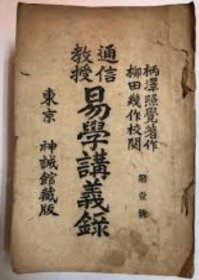 柄澤照覺著作
柳田幾作校閱
第壹號
通信
教授
易學講義錄
東京 神誠館藏版